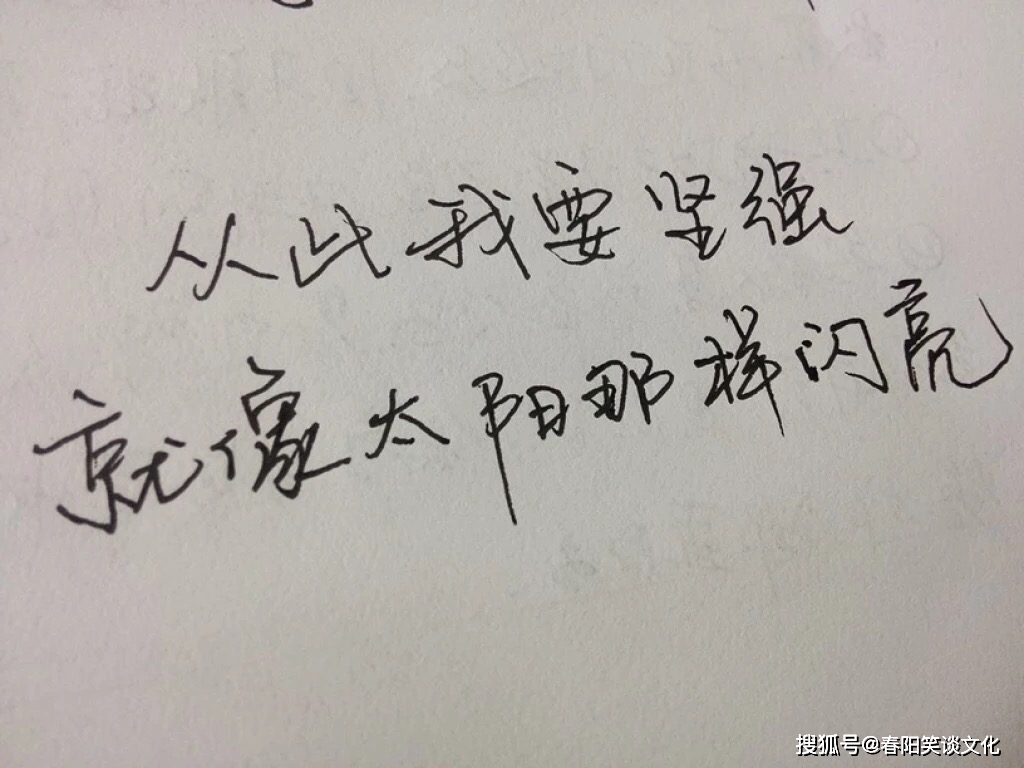 从此我要坚强
就像太阳那样闪亮
搜狐号@春阳笑谈文化